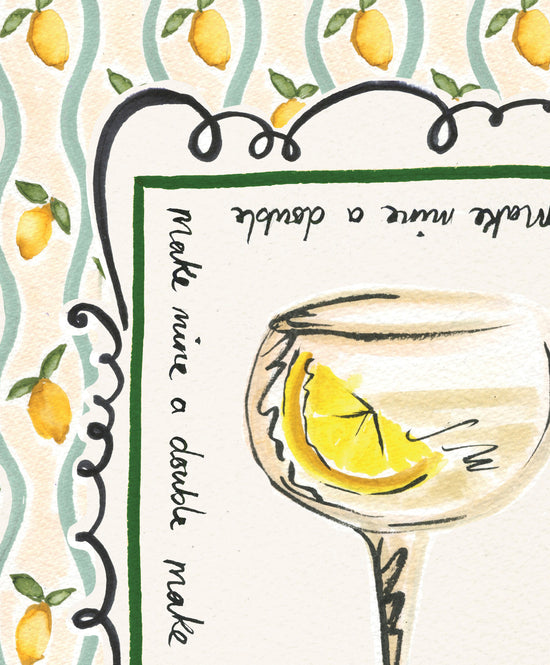 Make mine a double
Make mine a double Make